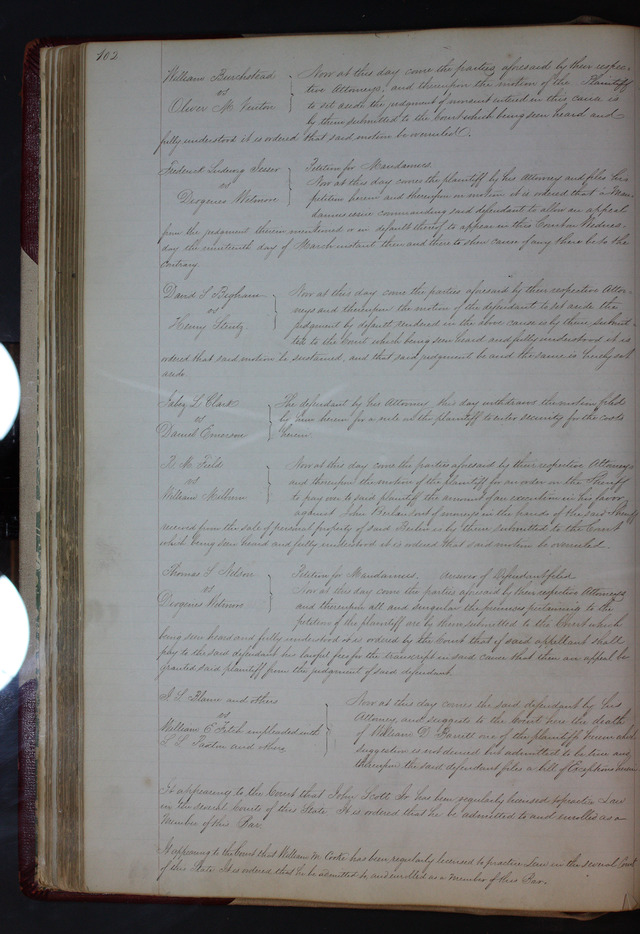 102
William Burchstead } Now at this day come the parties aforesaid by their respec-
vs tive Attorneys, and thereupon the motion of the Plaintiff
Oliver M. Venton to set aside the judgment of nonsuit entered in this cause is
by them submitted to the Court which being seen heard and
fully understood it is ordered that said motion be overruled.
Frederick Ludwig } Petition for Mandamus
vs Now at this day comes the plaintiff by his Attorney and files his
Diogenes Wetmore petition herein and thereupon on motion it is ordered that a Man-
damus issue commanding said defendant to allow an appeal
from the judgment therein mentioned or in default thereof to appear in this Court on Wednes-
day the nineteenth day of March instant then and there to shew cause if any there be to the
contrary.
David S. Bigham } Now at this day come the parties aforesaid by their respective Attor-
vs neys and thereupon the motion of the defendant to set aside the
Henry judgment by default rendered in the above cause is by them submit-
ted to the Court which being seen heard and fully understood it is
ordered that said motion be sustained, and that said judgment be and the same is hereby set
aside
Jabez L. Clark } The defendant by his Attorney this day withdraws the motion filed
vs by him herein for a rule on the plaintiff to enter security for the costs
Daniel Emerson herein.
R. M. Field } Now at this day come the parties aforesaid by their respective Attorneys
vs and thereupon the motion of the plaintiff for an order on the Sheriff
William Milburn to pay over to said plaintiff the amount of an execution in his favor
against John out of moneys in the hands of the said Sheriff
received from the sale of personal property of said is by them submitted to the Court
which being seen heard and fully understood it is ordered that said motion be overruled.
Thomas S. Nelson } Petition for Mandamus. Answer of Defendant filed
vs Now at this day come the parties aforesaid by their respective Attorneys
Diogenes Wetmore and thereupon all and singular the premises pertaining to the
petition of the plaintiff are by them submitted to the Court which
being seen heard and fully understood it is ordered by the Court that if said appellant shall
pay to the said defendant his lawful fees for the transcript in said cause that then an appeal be
granted said plaintiff from the judgment of said defendant.
and others } Now at this day comes the said defendant by his
vs Attorney and suggests to the Court here the death
William E. Fitch impleaded with of William D. one of the plaintiffs herein which
Paxton and others suggestion is not denied but admitted to be true and
thereupon the said defendant files a bill of Exceptions herein
It appearing to the Court that John Scott Jr has been regularly licensed to practice Law
in the several Courts of this State It is ordered that he be admitted to and enrolled as a
Member of this Bar.
It appearing to the Court that William M. Cooke has been regularly licensed to practice Law in the several Courts
of this State It is ordered that he be admitted to, and enrolled as a Member of this Bar.